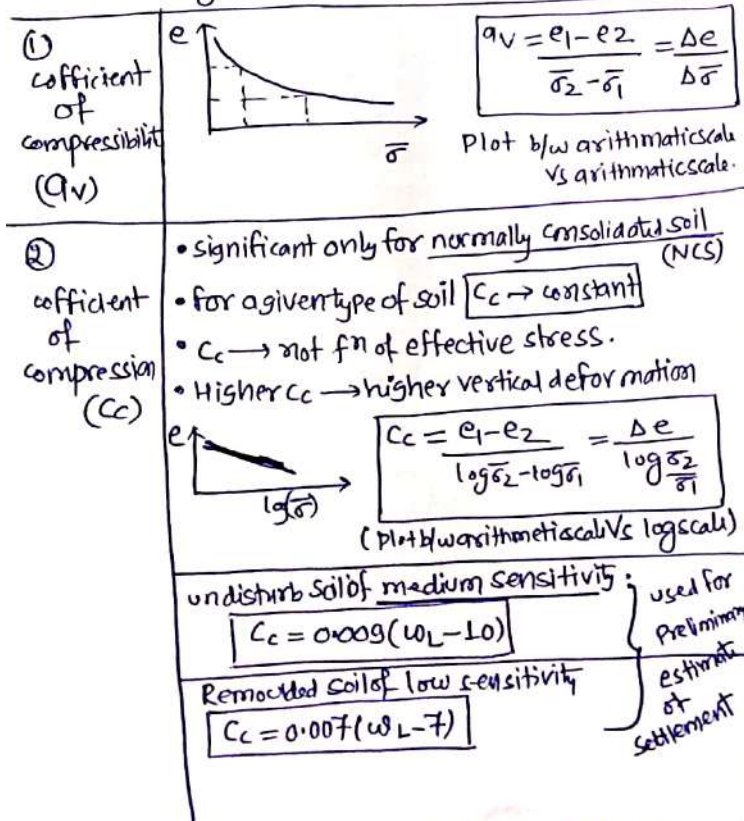 ①
cofficient
of
compressibilit
(av)
e
σ̅
av = e1-e2 / σ̅2-σ̅1 = Δe / Δσ̅
Plot b/w arithmaticscale
Vs arithmaticscale.
②
cofficient
of
compression
(Cc)
• significant only for normally consolidated soil
(NCS)
• for a given type of soil Cc → constant
• Cc → not fn of effective stress.
• Higher Cc → higher vertical deformation
e
log(σ̅)
Cc = e1-e2 / logσ̅2-logσ̅1 = Δe / log σ̅2/σ̅1
(Plot b/w arithmeticscal Vs logscale)
undisturb soil of medium sensitivity :
Cc = 0.009(ωL-10)
Remoulded soil of low sensitivity
Cc = 0.007(ωL-7)
used for
Preliminary
estimate
of
settlement